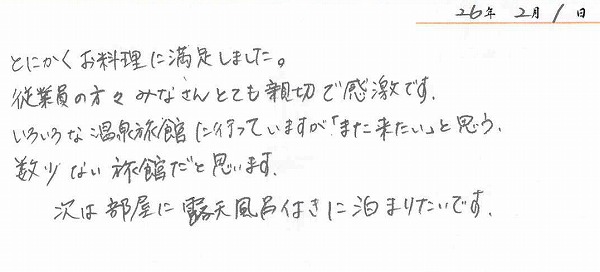 26年 2月 1日
とにかくお料理に満足しました。
従業員の方々みなさんとても親切で感激です.
いろいろな温泉旅館に行っていますが「また来たい」と思う.
数少ない旅館だと思います.
次は部屋に露天風呂付きに泊まりたいです.